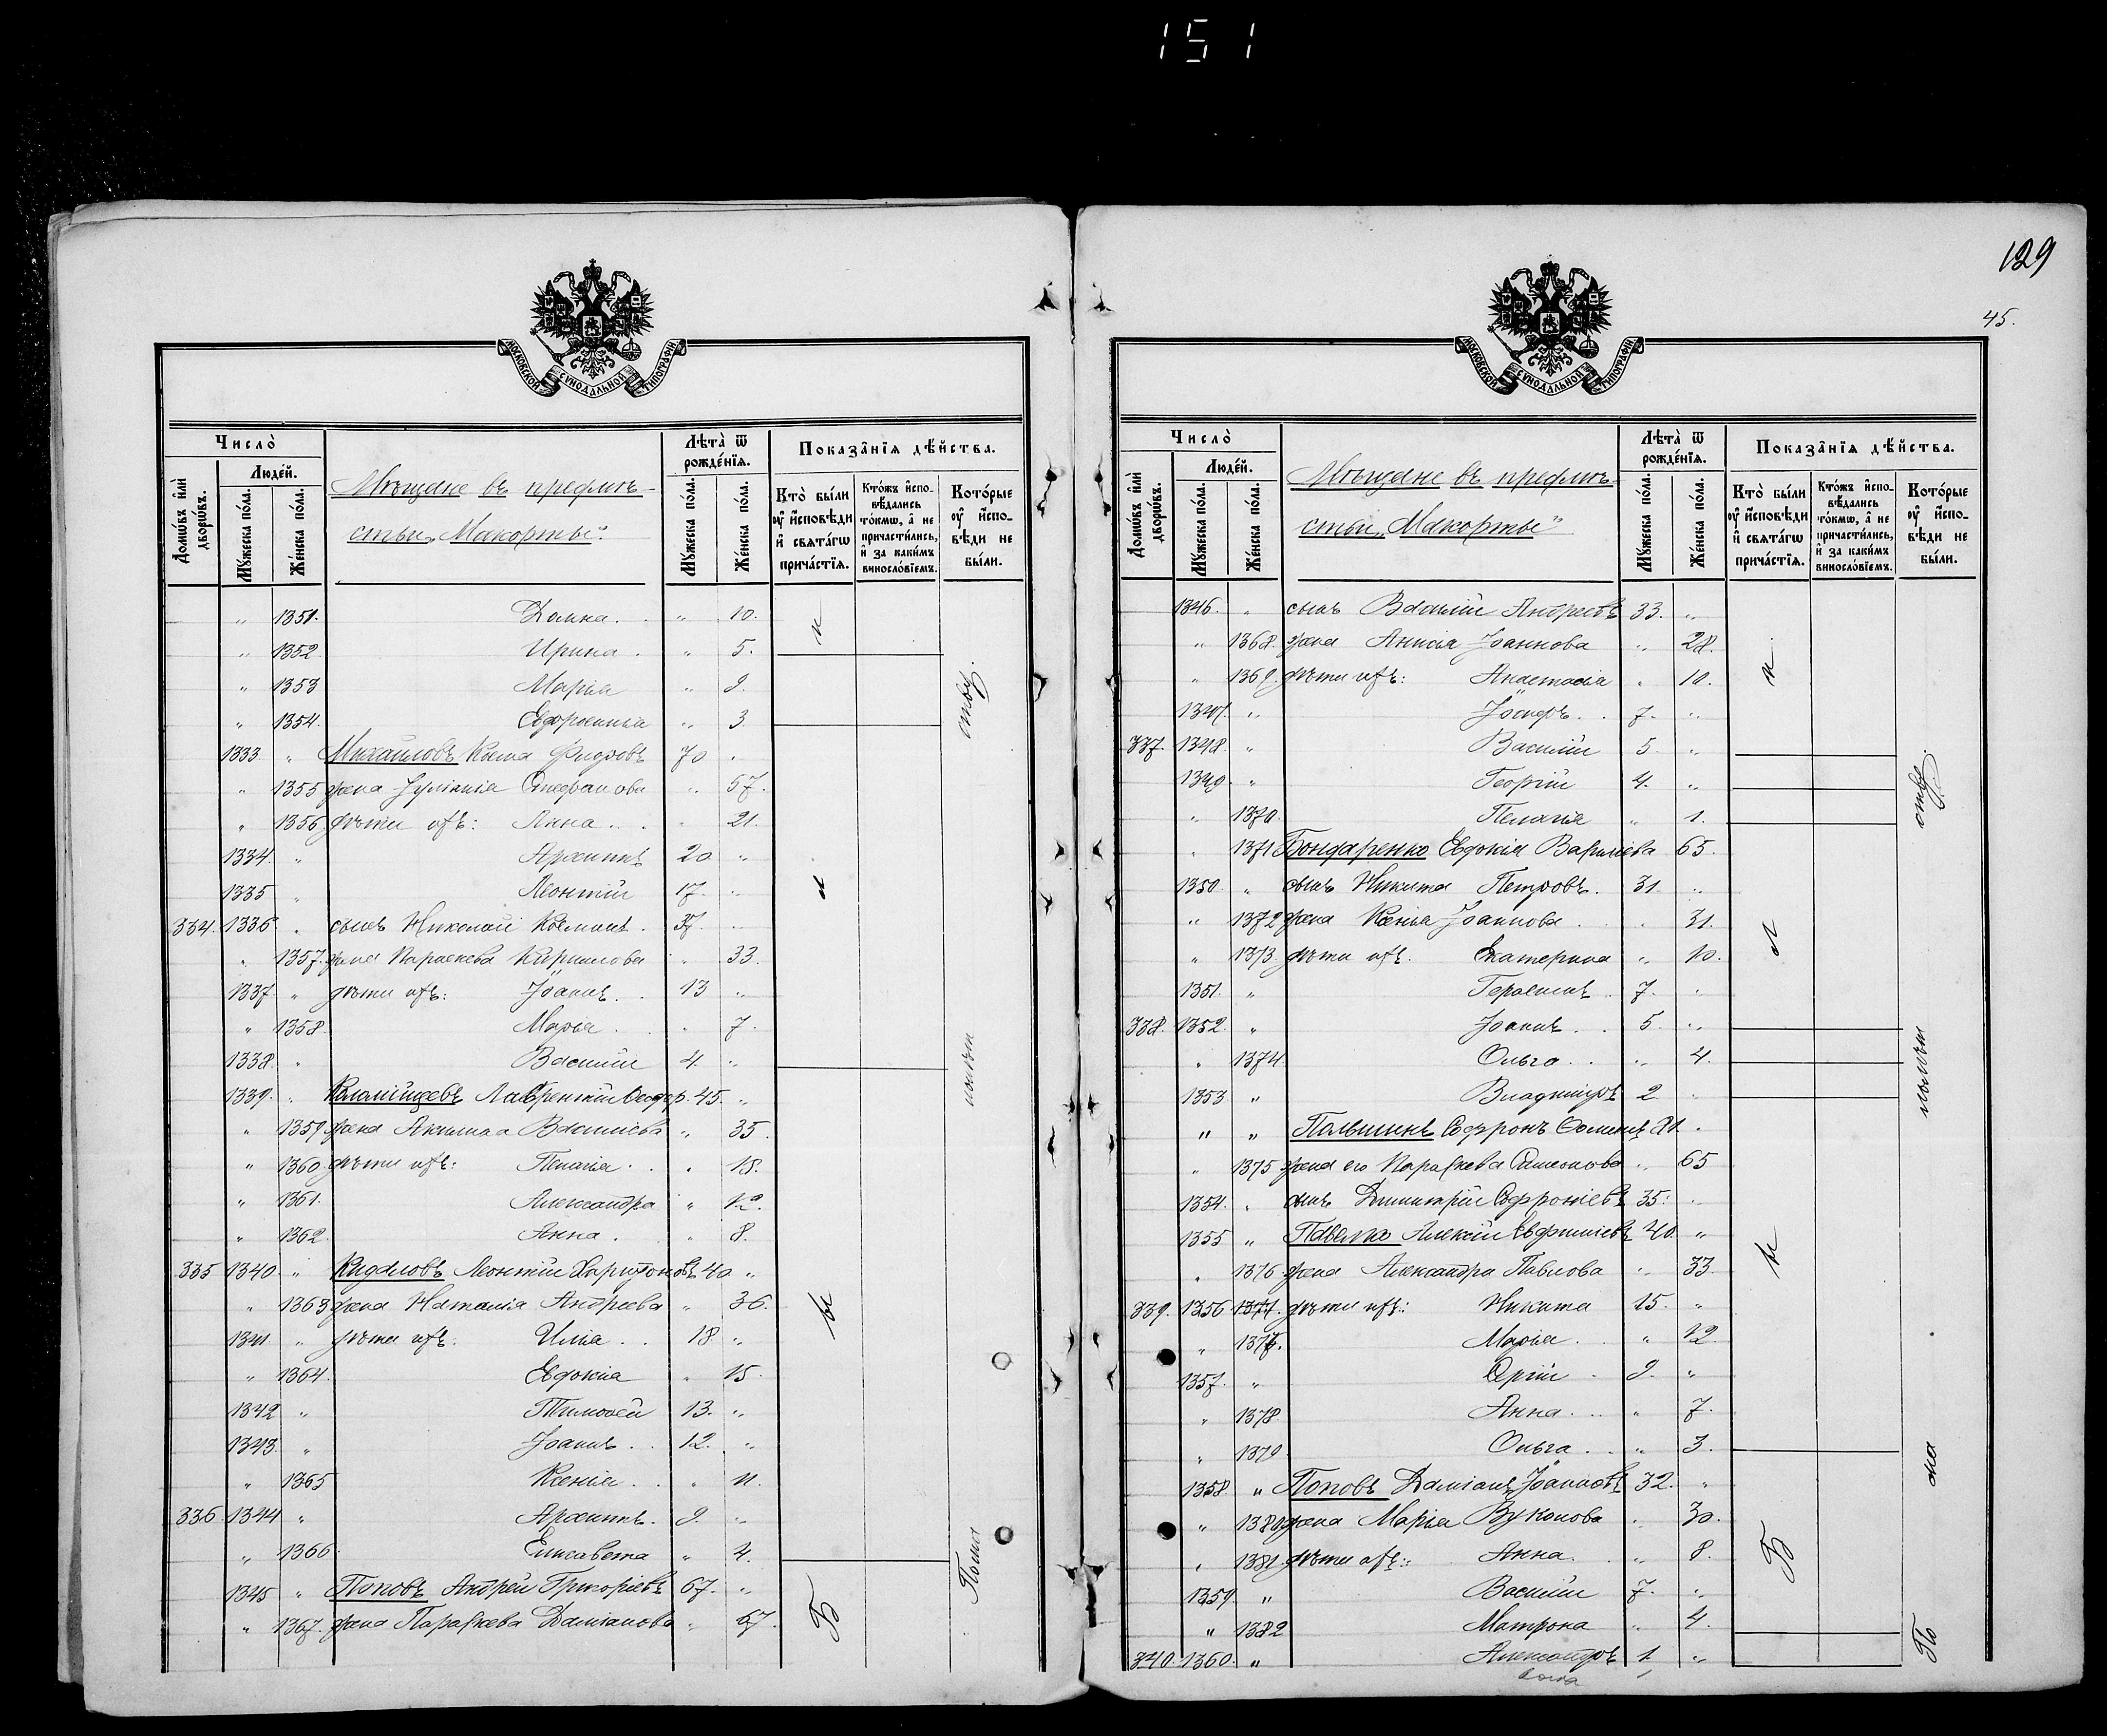 151
МОСКОВСКОЙ СѴНОДАЛЬНОЙ ТИПОГРАФІИ
Число̀
Люде́й.
Лѣта̀ ѿ рожде́нїѧ.
Показа̑нїѧ дѣ́йства.
Домѡ́въ и҆лѝ дворѡ́въ.
Мꙋ́жеска по́ла.
Же́нска по́ла.
Мѣщане въ предмѣ-
стьи „Макорты“
Мꙋ́жеска по́ла.
Же́нска по́ла.
Кто̀ бы́ли ᲂу҆ и҆́сповѣди и҆ свѧта́гѡ прича́стїѧ.
Кто́жъ и҆спо-вѣ́дались то́кмѡ, а҆ не причасти́лись, и҆ за каки́мъ виносло́вїемъ.
Кото́рые ᲂу҆ и҆́спо-вѣди не бы́ли.
" 1351. Домна. " 10.
" 1352 Ирина. " 5.
" 1353 Марія " 9.
" 1354. Евфросинія " 3
1333 " Михайловъ Косма 70 "
" 1355 жена Іуліанія Стефанова " 67.
" 1356 дѣти ихъ: Анна " 21.
1334. " Архиппъ 20 "
1335 " Леонтій 17. "
334. 1336 " сынъ Николай Косминъ. 37. "
" 1357. жена Параскева Кириллова " 33.
1337. " дѣти ихъ: Іоаннъ 13 "
" 1358. Марія " 7.
1338. " Василій 4. "
1339. " Коломійцевъ Лаврентій Ѳеодор. 45. "
" 1359 жена Акилина Василіева " 35.
" 1360 дѣти ихъ: Пелагія " 18.
" 1361. Александра " 12.
" 1362 Анна. " 8.
335 1340 " Кидаловъ Леонтій Харитоновъ 40 "
" 1363 жена Наталія Андреева " 36.
1341. " дѣти ихъ: Илія 18. "
" 1364. Евдокія " 15.
1342 " Тимоѳей 13. "
1343. " Іоаннъ 12. "
" 1365 Ксенія " 11.
336. 1344 " Архиппъ. 9. "
" 1366 Елисавета " 4.
1345 " Поповъ Андрей Григоріевъ 67. "
" 1367. жена Параскева Даміанова " 67.
Б
129
45.
МОСКОВСКОЙ СѴНОДАЛЬНОЙ ТИПОГРАФІИ
Число̀
Люде́й.
Лѣта̀ ѿ рожде́нїѧ.
Показа̑нїѧ дѣ́йства.
Домѡ́въ и҆лѝ дворѡ́въ.
Мꙋ́жеска по́ла.
Же́нска по́ла.
Мѣщане въ предмѣ-
стьи „Макорты“
Мꙋ́жеска по́ла.
Же́нска по́ла.
Кто̀ бы́ли ᲂу҆ и҆́сповѣди и҆ свѧта́гѡ прича́стїѧ.
Кто́жъ и҆спо-вѣ́дались то́кмѡ, а҆ не причасти́лись, и҆ за каки́мъ виносло́вїемъ.
Кото́рые ᲂу҆ и҆́спо-вѣди не бы́ли.
1346. " сынъ Василій Андреевъ 33. "
" 1368. жена Анисія Іоаннова " 28.
" 1369. дѣти ихъ: Анастасія " 10.
1347. " Іосифъ 7. "
337. 1348. " Василій 5. "
1349. " Георгій 4. "
" 1370. Пелагія " 1.
" 1371 Бондаренко Евдокія 65.
1350. " сынъ Никита Петровъ. 31. "
" 1372 жена Ксенія Іоаннова " 31.
" 1373. дѣти ихъ. Екатерина " 10.
1351. " Герасимъ 7. "
338. 1352. " Іоаннъ 5. "
" 1374. Ольга " 4.
1353 " Владиміръ 2 "
" " Польшинъ Софронъ
" 1375 жена его Параскева Симеонова " 65
1354. " сынъ Димитрій Софроніевъ 35. "
1355 " Павлко Алексій Евфиміевъ 40. "
" 1376 жена Александра Павлова " 33
339. 1356 1377. дѣти ихъ: Никита 15. "
" 1377. Марія " 12
1357. " Сергій 9. "
" 1378 Анна " 7.
" 1379. Ольга " 3.
1358 " Поповъ Даміанъ Іоанновъ 32. "
" 1380 жена Марія Вуколова " 30.
" 1381 дѣти ихъ: Анна " 8.
1359. " Василій 7. "
" 1382 Матрона " 4.
340. 1360. " Александръ 1. "
Б
По